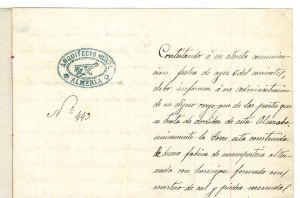 ARQUITECTO MUNICIPAL
ALMERIA
Nº 443
Contestando á su atenta comunica-
cion fecha de ayer 6 del corriente,
debo informar á esa administracion
de su digno cargo, que de las partes que
se trata de derribar de esta Alcazaba
unicamente la torre, está construida
de buena fabrica de mamposteria alter-
nada con hormigon formado con
mortero de cal y piedra